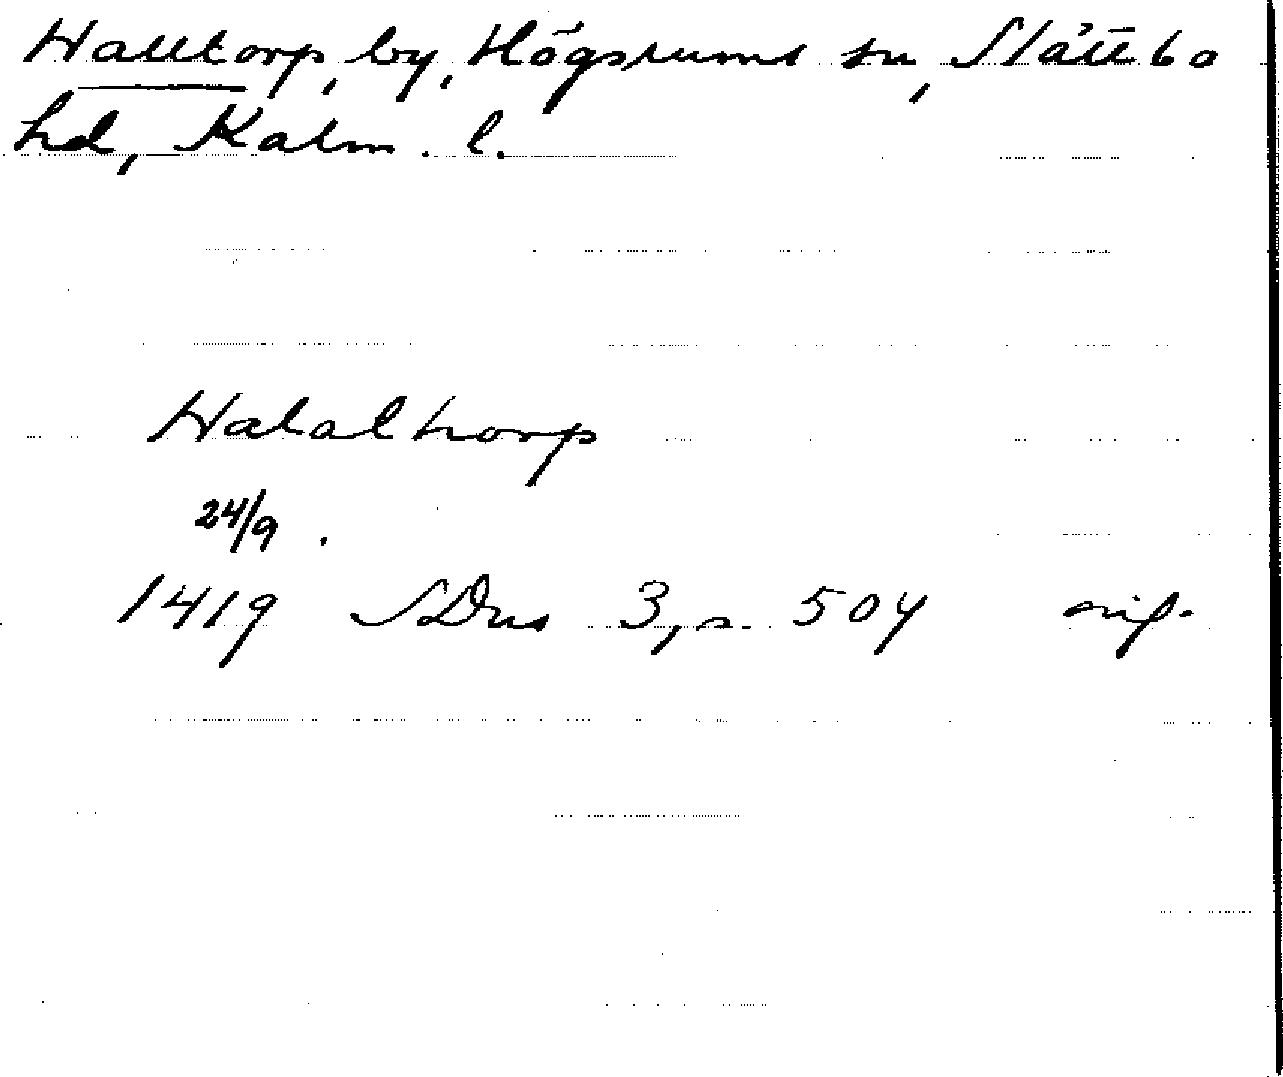 Halltorp, by, Högsrums sn, Slättbo
hd, Kalm. l.
Halalthorp
24/9.
1419 SDns 3, s. 504